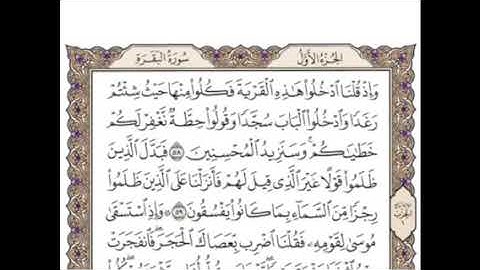 الجُزْءُ الأَوَّلُ
سُورَةُ البَقَرَةِ
وَإِذْ قُلْنَا ٱدْخُلُوا۟ هَٰذِهِ ٱلْقَرْيَةَ فَكُلُوا۟ مِنْهَا حَيْثُ شِئْتُمْ
رَغَدًا وَٱدْخُلُوا۟ ٱلْبَابَ سُجَّدًا وَقُولُوا۟ حِطَّةٌ نَّغْفِرْ لَكُمْ
خَطَٰيَٰكُمْ ۚ وَسَنَزِيدُ ٱلْمُحْسِنِينَ ٥٨ فَبَدَّلَ ٱلَّذِينَ
ظَلَمُوا۟ قَوْلًا غَيْرَ ٱلَّذِى قِيلَ لَهُمْ فَأَنزَلْنَا عَلَى ٱلَّذِينَ ظَلَمُوا۟
رِجْزًا مِّنَ ٱلسَّمَآءِ بِمَا كَانُوا۟ يَفْسُقُونَ ٥٩ ۞ وَإِذِ ٱسْتَسْقَىٰ
مُوسَىٰ لِقَوْمِهِۦ فَقُلْنَا ٱضْرِب بِّعَصَاكَ ٱلْحَجَرَ ۖ فَٱنفَجَرَتْ